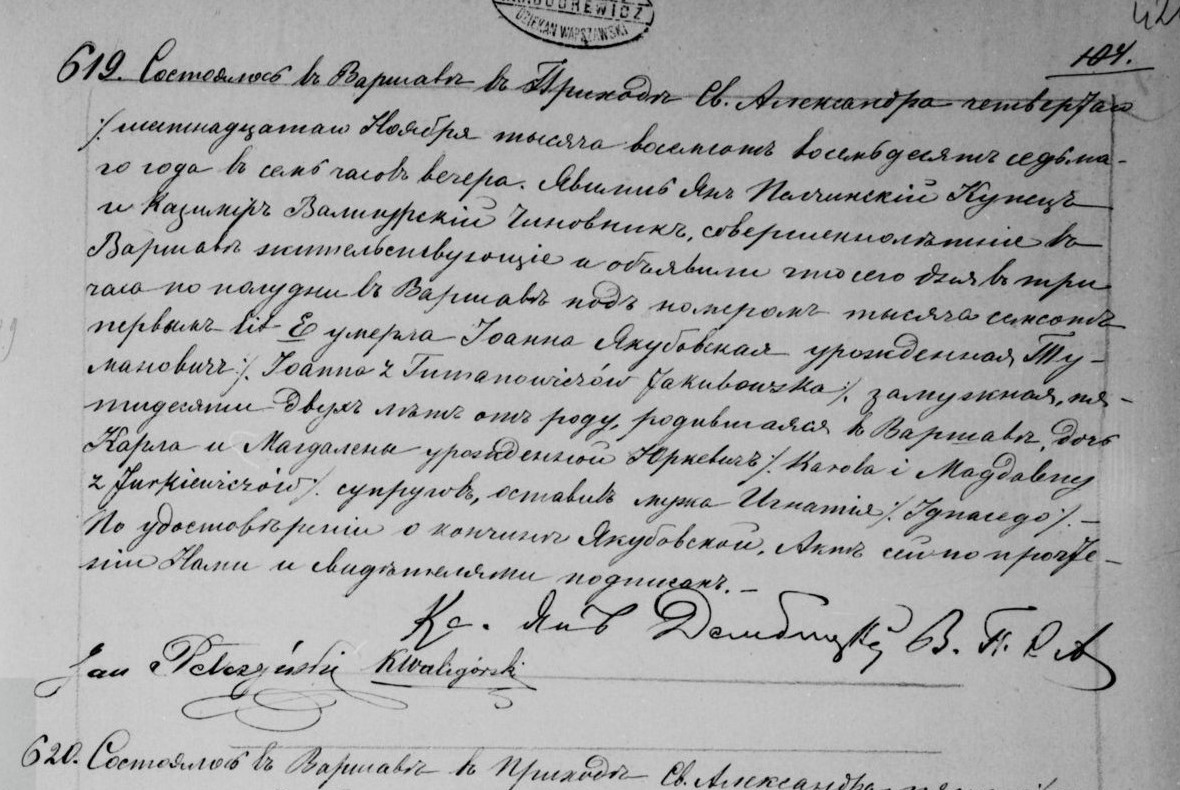 DZIEKAN WARSZAWSKI
104.
619. Состоялось въ Варшавѣ въ Приходѣ Св. Александра четвертаго
/: шестнадцатаго Ноября тысяча восемсотъ восемьдесятъ седьма-
го года въ семь часовъ вечера. Явились Янъ Пелчинскій Купецъ
и Казимиръ Валигурскій Чиновникъ, совершеннолѣтніе въ
Варшавѣ жительствующіе и объявили что сего дня въ три
часа по полудни въ Варшавѣ подъ номеромъ тысяча семсотъ
первымъ lit E умерла Іоанна Якубовская урожденная Ту-
мановичъ /: Joanna z Tumanowiczów Jakubowska :/ замужная, пя-
тидесяти двухъ лѣтъ отъ роду, родившаяся въ Варшавѣ, дочь
Карла и Магдалены урожденной Юркевичъ /: Karola i Magdaleny
z Jurkiewiczów :/ супруговъ, оставивъ мужа Игнатія /: Ignacego :/. —
По удостовѣреніи о кончинѣ Якубовской, Актъ сей по прочте-
ніи Нами и свидѣтелями подписанъ. —
Кс. Янъ Дембицкій В. П. С. А
Jan Pełczyński KWaligórski
620. Состоялось въ Варшавѣ въ Приходѣ Св. Александра